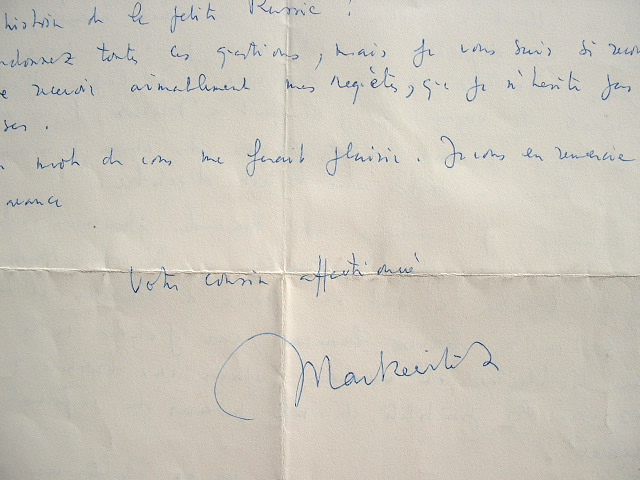 histoire de la petite Russie !
donnez toutes ces questions, mais je vous suis si recon
recevoir aimablement mes regrets, que je n'hésite pas
ser.
mot de vous me ferait plaisir. Je vous en remercie
avance
Votre cousin affectionné